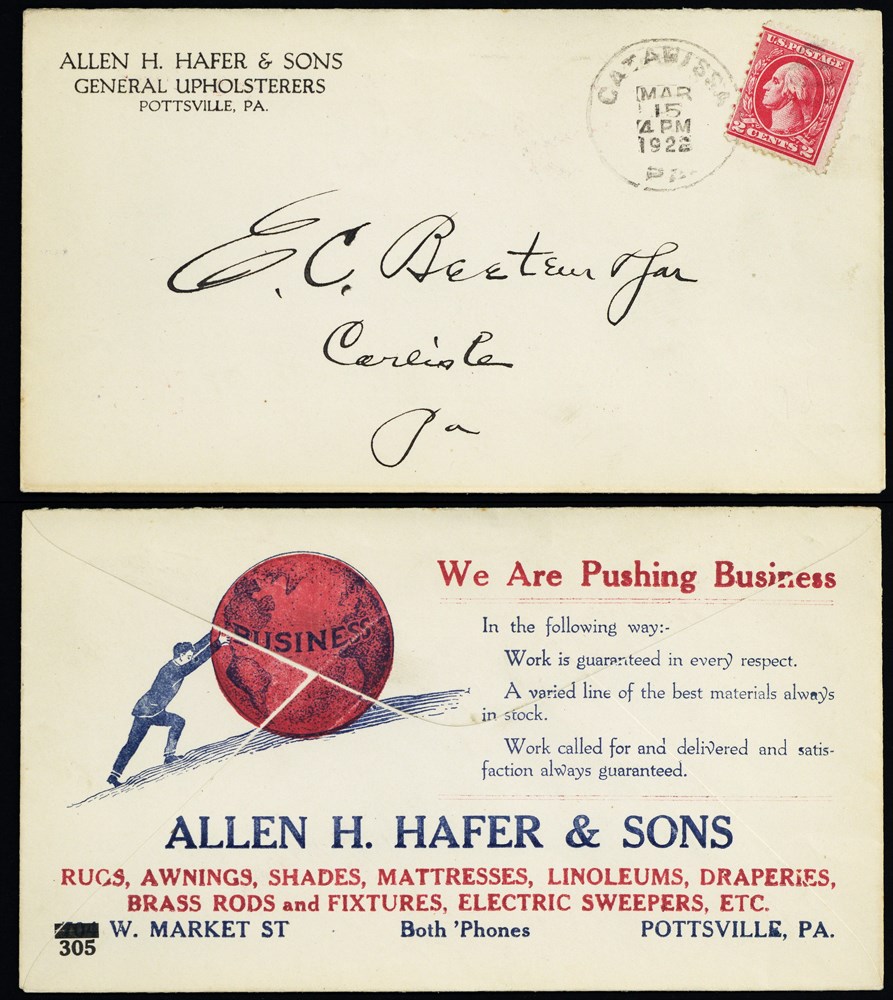 ALLEN H. HAFER & SONS
GENERAL UPHOLSTERERS
POTTSVILLE, PA.
CATAWISSA
MAR
15
4 PM
1922
PA.
U.S. POSTAGE
2 CENTS 2
E. C. Beeteur
Carlisle
Pa
BUSINESS
We Are Pushing Business
In the following way:-
Work is guaranteed in every respect.
A varied line of the best materials always
in stock.
Work called for and delivered and satis-
faction always guaranteed.
ALLEN H. HAFER & SONS
RUGS, AWNINGS, SHADES, MATTRESSES, LINOLEUMS, DRAPERIES,
BRASS RODS and FIXTURES, ELECTRIC SWEEPERS, ETC.
W. MARKET ST Both 'Phones POTTSVILLE, PA.
305